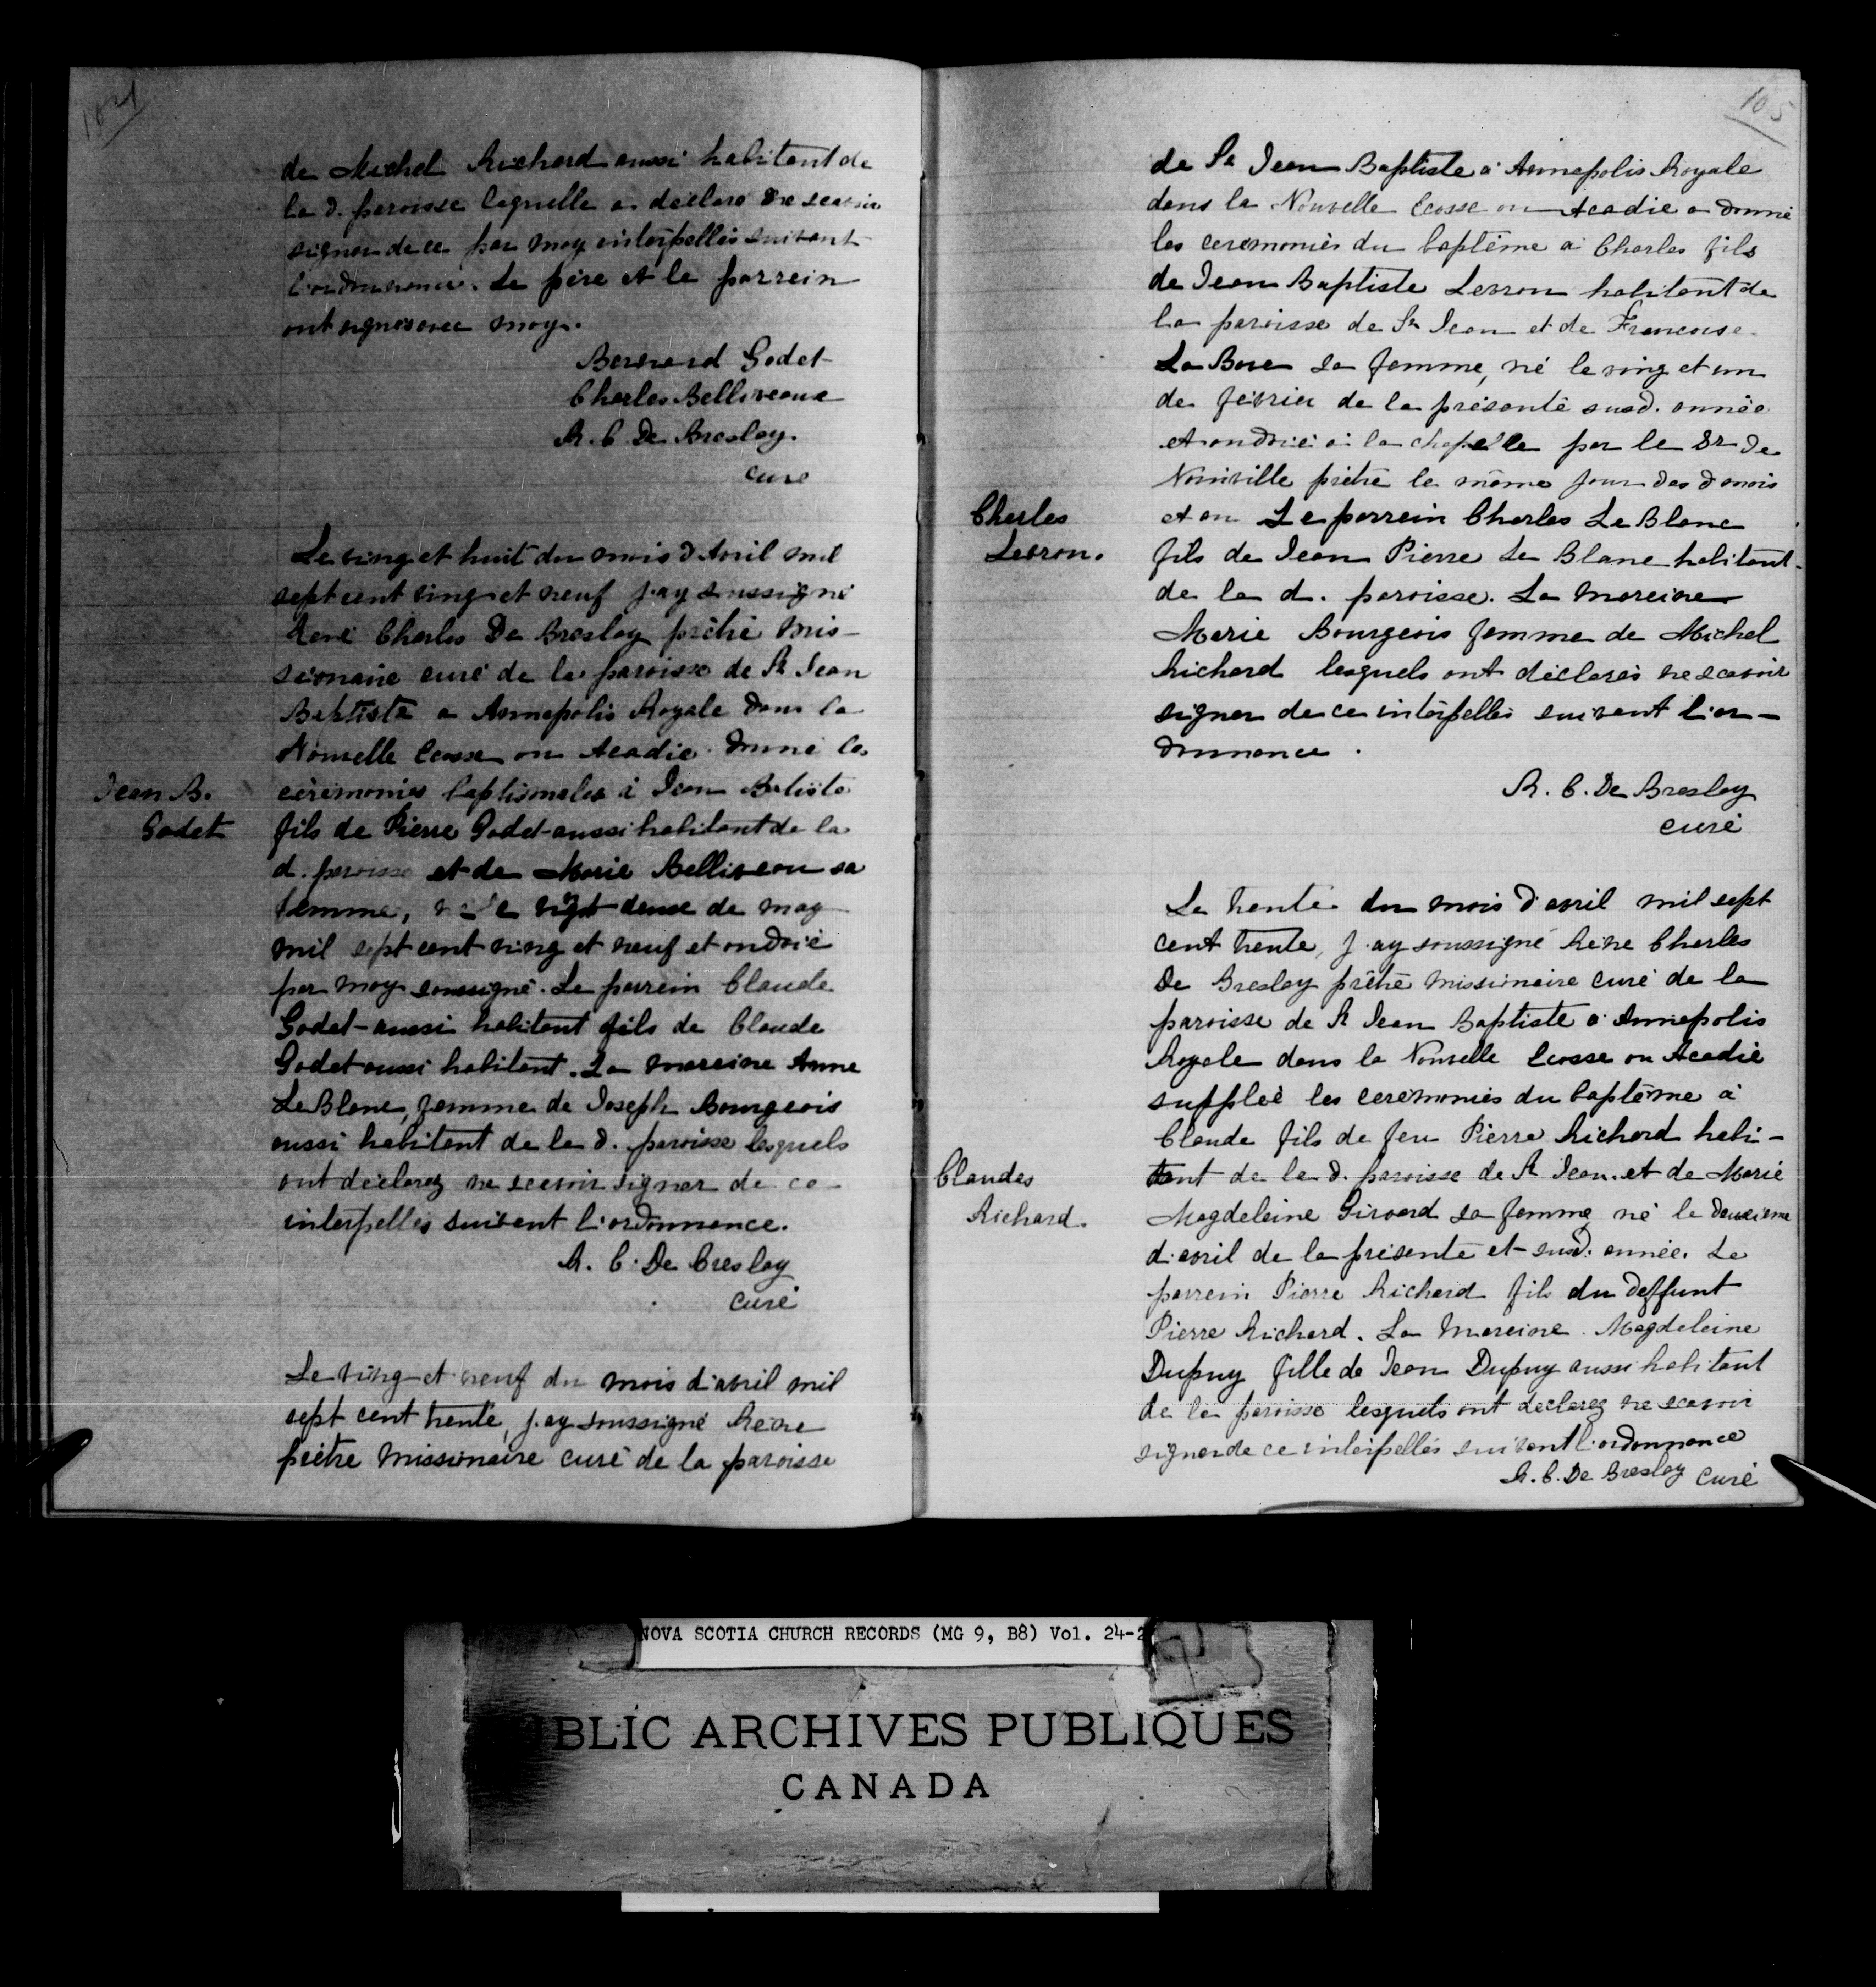 104
de Michel Richard aussi habitant de
la d. paroisse laquelle a declaré ne scavoir
signer de ce par moy interpellés suivant
l'ordonnance. Le père et le parrein
ont signés avec moy.
Bernard Godet
Charles Belliveaux
R. C. De Breslay.
curé
Le ving et huit du mois d'Avril mil
sept cent ving et neuf j'ay soussigné
René Charles De Breslay prêtre mis-
sionaire curé de la paroisse de St Jean
Baptiste a Annapolis Royale dans la
Nouvelle Ecosse ou Acadie donné les
cérémonies baptismales à Jean Batiste
Jean B.
Godet
fils de Pierre Godet aussi habitant de la
d. paroisse et de Marie Belliveau sa
femme, né le vigt deuse de may
mil sept cent ving et neuf et ondoié
par moy soussigné. Le parrein Claude
Godet aussi habitant fils de Claude
Godet aussi habitant. La mareine Anne
LeBlanc, femme de Joseph Bourgeois
aussi habitant de la d. paroisse lesquels
ont déclarez ne scavoir signer de ce
interpellés suivant l'ordonnance.
R. C. De Breslay
curé
Le ving et neuf du mois d'avril mil
sept cent trente, j'ay soussigné Réné
prêtre missionaire curé de la paroisse
105
de St Jean Baptiste a Annapolis Royale
dans la Nouvelle Ecosse ou Acadie a donné
les ceremoniès du baptême à Charles fils
de Jean Baptiste Levron habitant de
la paroisse de St Jean et de Francoise
La Bove sa femme, né le ving et un
de février de la présente susd. année
et ondoié à la chapelle par le Sr de
Noinville prêtre le même jour des d mois
Charles
Levron.
et an Le parrein Charles Le Blanc
fils de Jean Pierre Le Blanc habitant
de la d. paroisse. La mareine
Marie Bourgeois femme de Michel
Richard lesquels ont déclarés ne scavoir
signer de ce interpellés suivant l'or-
donnance.
R. C. De Breslay
curé
Le trente du mois d'avril mil sept
cent trente, j'ay soussigné Réne Charles
De Breslay prêtre missionaire curé de la
paroisse de St Jean Baptiste a Annapolis
Royale dans la Nouvelle Ecosse ou Acadie
suppléé les ceremonies du baptême à
Claude fils de feu Pierre Richard habi-
Claudes
Richard.
tant de la d. paroisse de St Jean et de Marie
Magdeleine Girvard sa femme, né le deuxieme
d'avril de la présente et susd. année. Le
parrein Pierre Richard fils du deffunt
Pierre Richard. La Mareine Magdeleine
Dupuy fille de Jean Dupuy aussi habitant
de la paroisse lesquels ont declarez ne scavoir
signer de ce interpellés suivant l'ordonnance
R. C. De Breslay curé
NOVA SCOTIA CHURCH RECORDS (MG 9, B8) Vol. 24-2
BLIC ARCHIVES PUBLIQUES
CANADA